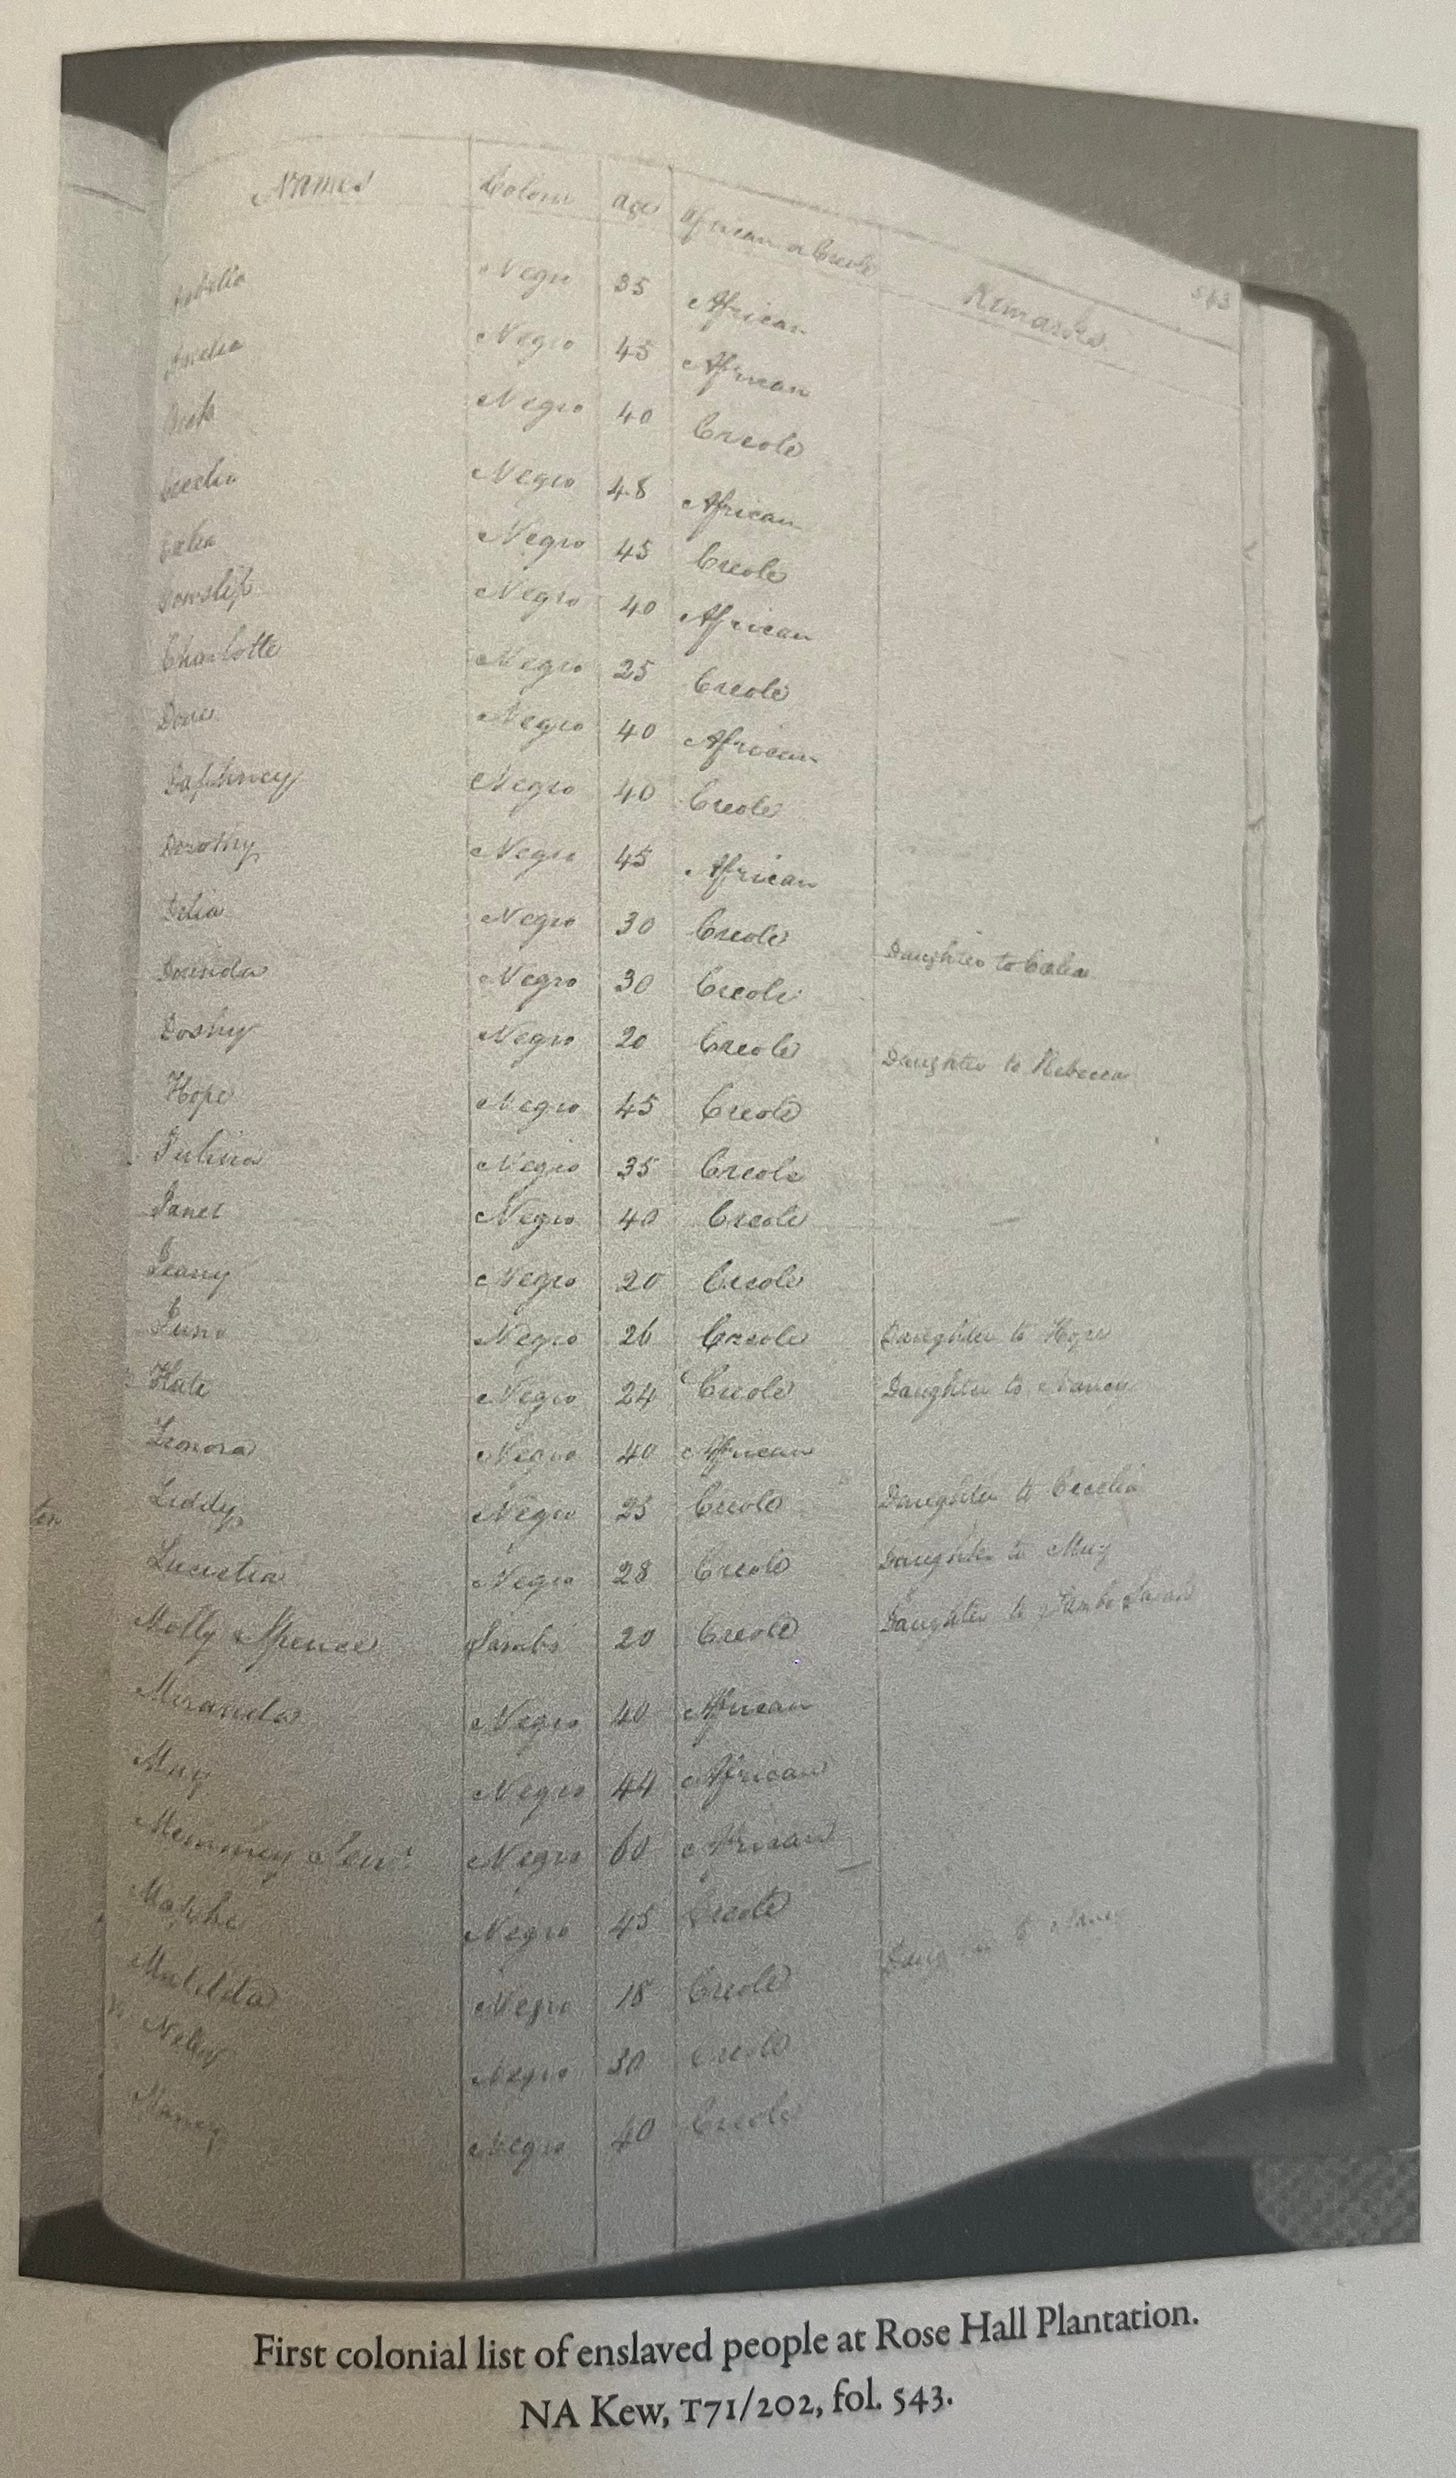 Names Colour Age African or Creole Remarks 543
Negro 35 African
Amelia Negro 45 African
Negro 40 Creole
Cecelia Negro 48 African
Celia Negro 45 Creole
Cowslip Negro 40 African
Charlotte Negro 25 Creole
Negro 40 African
Daphney Negro 40 Creole
Dorothy Negro 45 African
Delia Negro 30 Creole Daughter to Celia
Dorinda Negro 30 Creole
Doshy Negro 20 Creole Daughter to Rebecca
Hope Negro 45 Creole
Julina Negro 35 Creole
Janet Negro 40 Creole
Jeany Negro 20 Creole
Juno Negro 26 Creole Daughter to Hope
Kate Negro 24 Creole Daughter to Nancy
Leonora Negro 40 African
Liddy Negro 25 Creole Daughter to Cecelia
Lucretia Negro 28 Creole Daughter to May
Molly Spence Sambo 20 Creole Daughter to Sambo Sarah
Miranda Negro 40 African
May Negro 44 African
Memmey Senr. Negro 60 African
Negro 45 Creole
Matilda Negro 18 Creole Daughter to
Negro 30 Creole
Nancy Negro 40 Creole
First colonial list of enslaved people at Rose Hall Plantation.
NA Kew, T71/202, fol. 543.